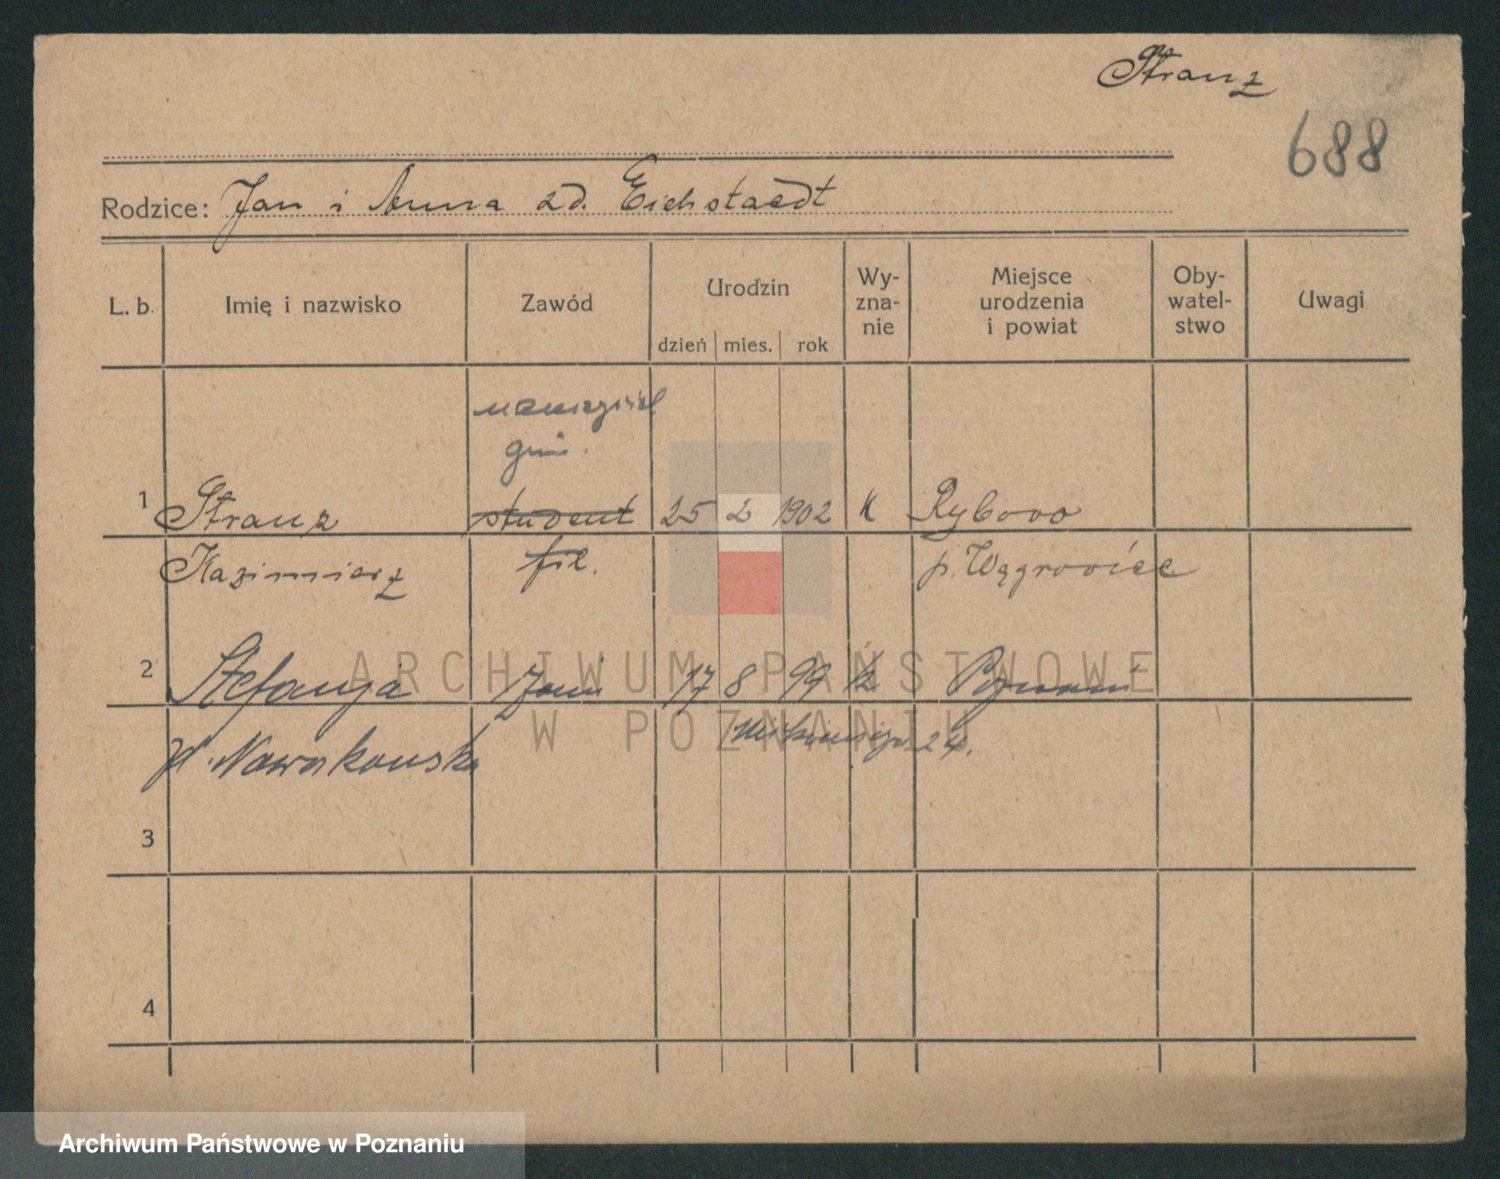 Stranz
688
Rodzice: Jan i Anna zd. Eichstaedt
L. b. Imię i nazwisko Zawód Urodzin Wy-zna-nie Miejsce urodzenia i powiat Oby-watel-stwo Uwagi
dzień mies. rok
gim.
1 Stranz student 25 2 1902 k Rybowo
Kazimierz fil. p. Wągrowiec
2 Stefanja żona 17 8 99 k Poznań
d. Nowakowska 24.
3
4
ARCHIWUM PAŃSTWOWE
W POZNANIU
Archiwum Państwowe w Poznaniu